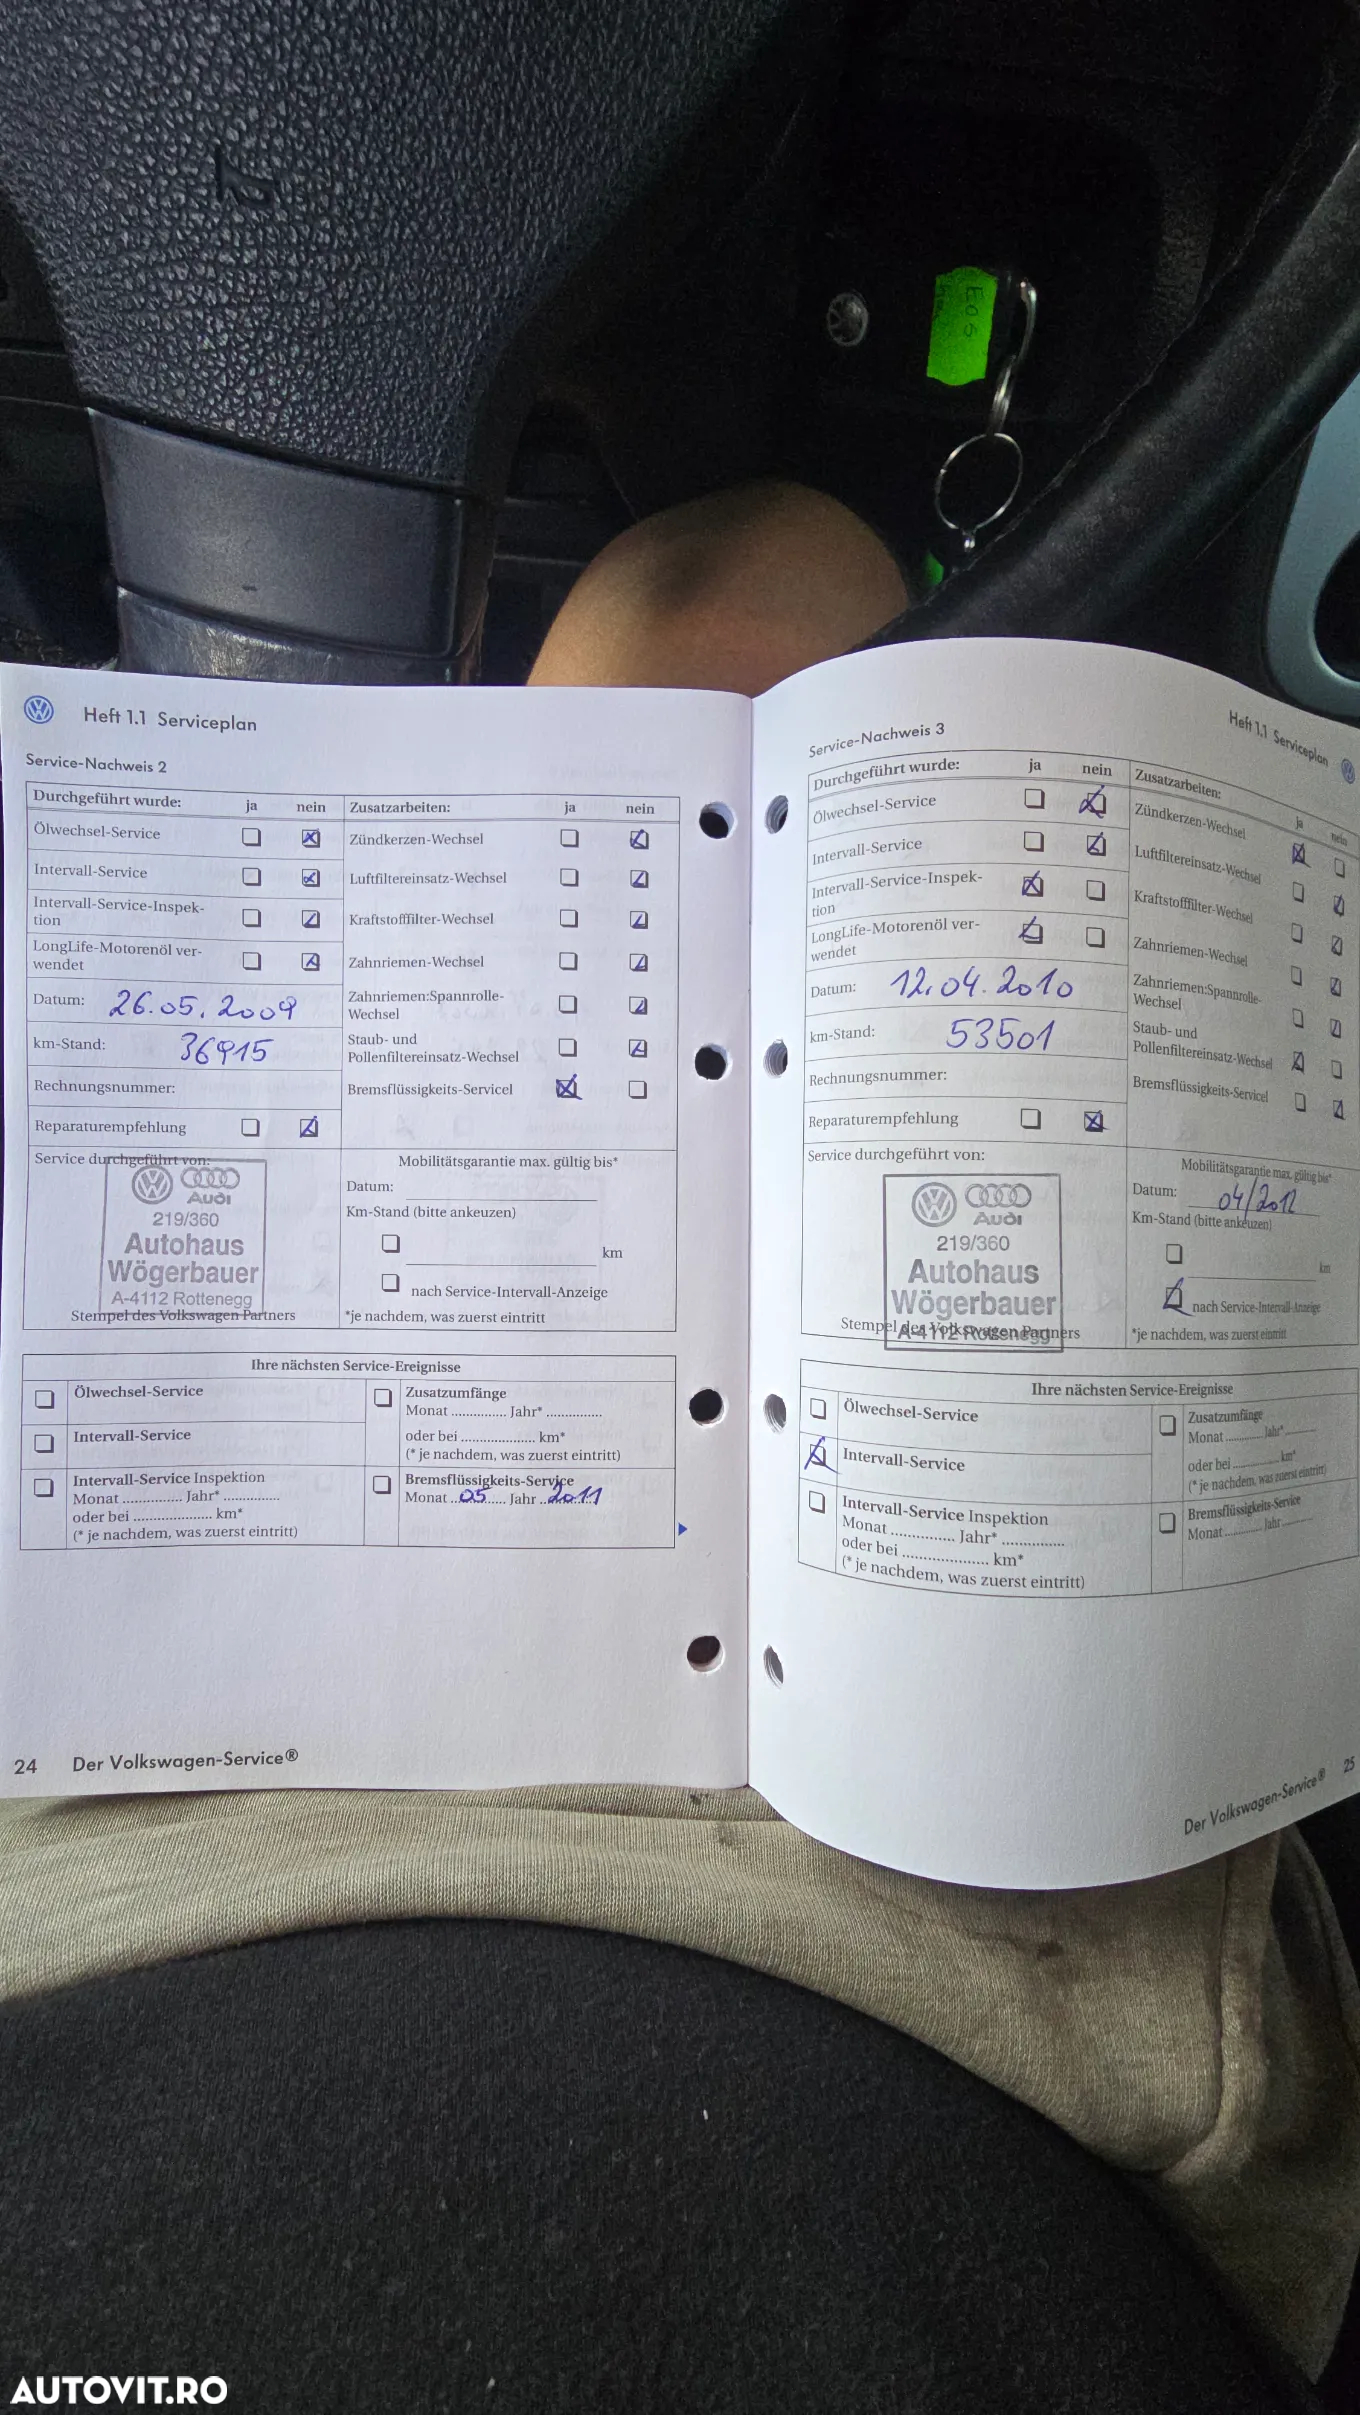 EOS
Heft 1.1 Serviceplan
Service-Nachweis 2
Durchgeführt wurde: ja nein Zusatzarbeiten: ja nein
Ölwechsel-Service Zündkerzen-Wechsel
Intervall-Service Luftfiltereinsatz-Wechsel
Intervall-Service-Inspek-
tion Kraftstofffilter-Wechsel
LongLife-Motorenöl ver-
wendet Zahnriemen-Wechsel
Datum: 26.05.2009 Zahnriemen:Spannrolle-
Wechsel
km-Stand: 36915 Staub- und
Pollenfiltereinsatz-Wechsel
Rechnungsnummer: Bremsflüssigkeits-Servicel
Reparaturempfehlung
Service durchgeführt von: Mobilitätsgarantie max. gültig bis*
Audi
219/360
Autohaus
Wögerbauer
A-4112 Rottenegg
Stempel des Volkswagen Partners
Datum:
Km-Stand (bitte ankeuzen)
km
nach Service-Intervall-Anzeige
*je nachdem, was zuerst eintritt
Ihre nächsten Service-Ereignisse
Ölwechsel-Service
Intervall-Service
Intervall-Service Inspektion
Monat ............... Jahr* ...............
oder bei .................... km*
(* je nachdem, was zuerst eintritt)
Zusatzumfänge
Monat ............... Jahr* ...............
oder bei .................... km*
(* je nachdem, was zuerst eintritt)
Bremsflüssigkeits-Service
Monat 05 Jahr 2011
24 Der Volkswagen-Service®
Heft 1.1 Serviceplan
Service-Nachweis 3
Durchgeführt wurde: ja nein Zusatzarbeiten: ja nein
Ölwechsel-Service Zündkerzen-Wechsel
Intervall-Service Luftfiltereinsatz-Wechsel
Intervall-Service-Inspek-
tion Kraftstofffilter-Wechsel
LongLife-Motorenöl ver-
wendet Zahnriemen-Wechsel
Datum: 12.04.2010 Zahnriemen:Spannrolle-
Wechsel
km-Stand: 53501 Staub- und
Pollenfiltereinsatz-Wechsel
Rechnungsnummer: Bremsflüssigkeits-Servicel
Reparaturempfehlung
Service durchgeführt von: Mobilitätsgarantie max. gültig bis*
Audi
219/360
Autohaus
Wögerbauer
A-4112 Rottenegg
Stempel des Volkswagen Partners
Datum: 04/2012
Km-Stand (bitte ankeuzen)
km
nach Service-Intervall-Anzeige
*je nachdem, was zuerst eintritt
Ihre nächsten Service-Ereignisse
Ölwechsel-Service
Intervall-Service
Intervall-Service Inspektion
Monat ............... Jahr* ...............
oder bei .................... km*
(* je nachdem, was zuerst eintritt)
Zusatzumfänge
Monat ............... Jahr* ...............
oder bei .................... km*
(* je nachdem, was zuerst eintritt)
Bremsflüssigkeits-Service
Monat ............... Jahr ...............
Der Volkswagen-Service® 25
AUTOVIT.RO